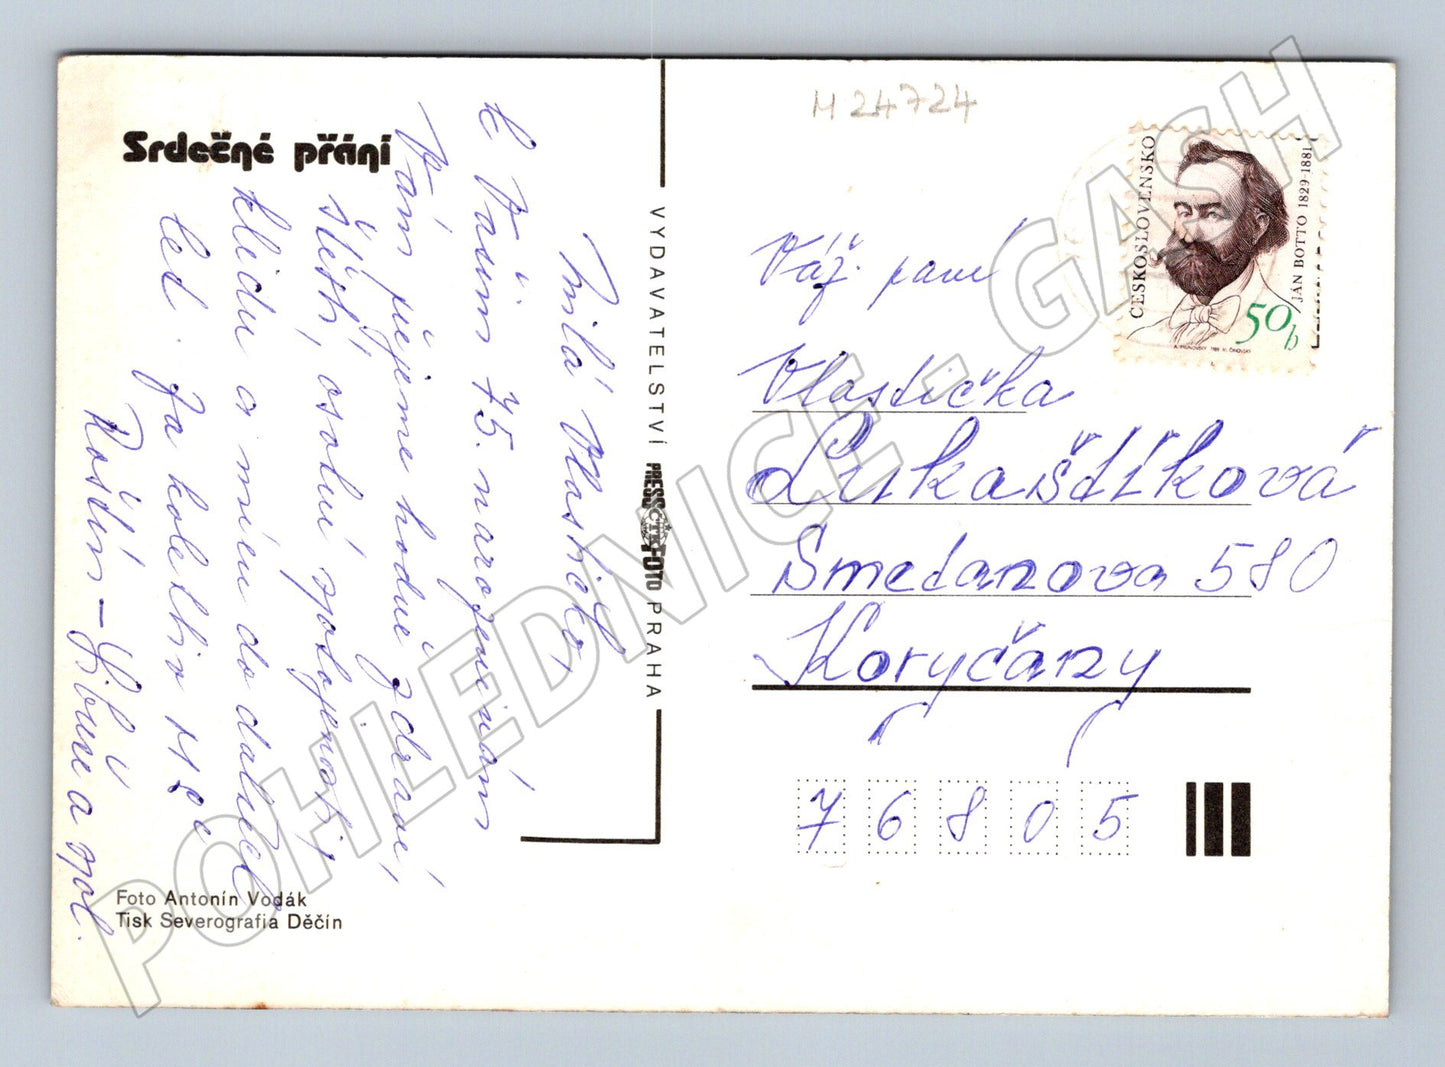 Srdečné přání
Milá Vlastičko,
k Vašim 75. narozeninám
Vám přejeme hodně zdraví,
štěstí, osobní spokojenosti,
klidu a míru do dalších
let. Za kolektiv
Košín – a spol.
Foto Antonín Vodák
Tisk Severografia Děčín
VYDAVATELSTVÍ PRESSFOTO PRAHA
ČTK
M 24724
ČESKOSLOVENSKO
JÁN BOTTO 1829-1881
50 h
Váž. paní
Vlastička
Lukaštíková
Smetanova 580
Koryčany
76805
POHLEDNICE - GASH